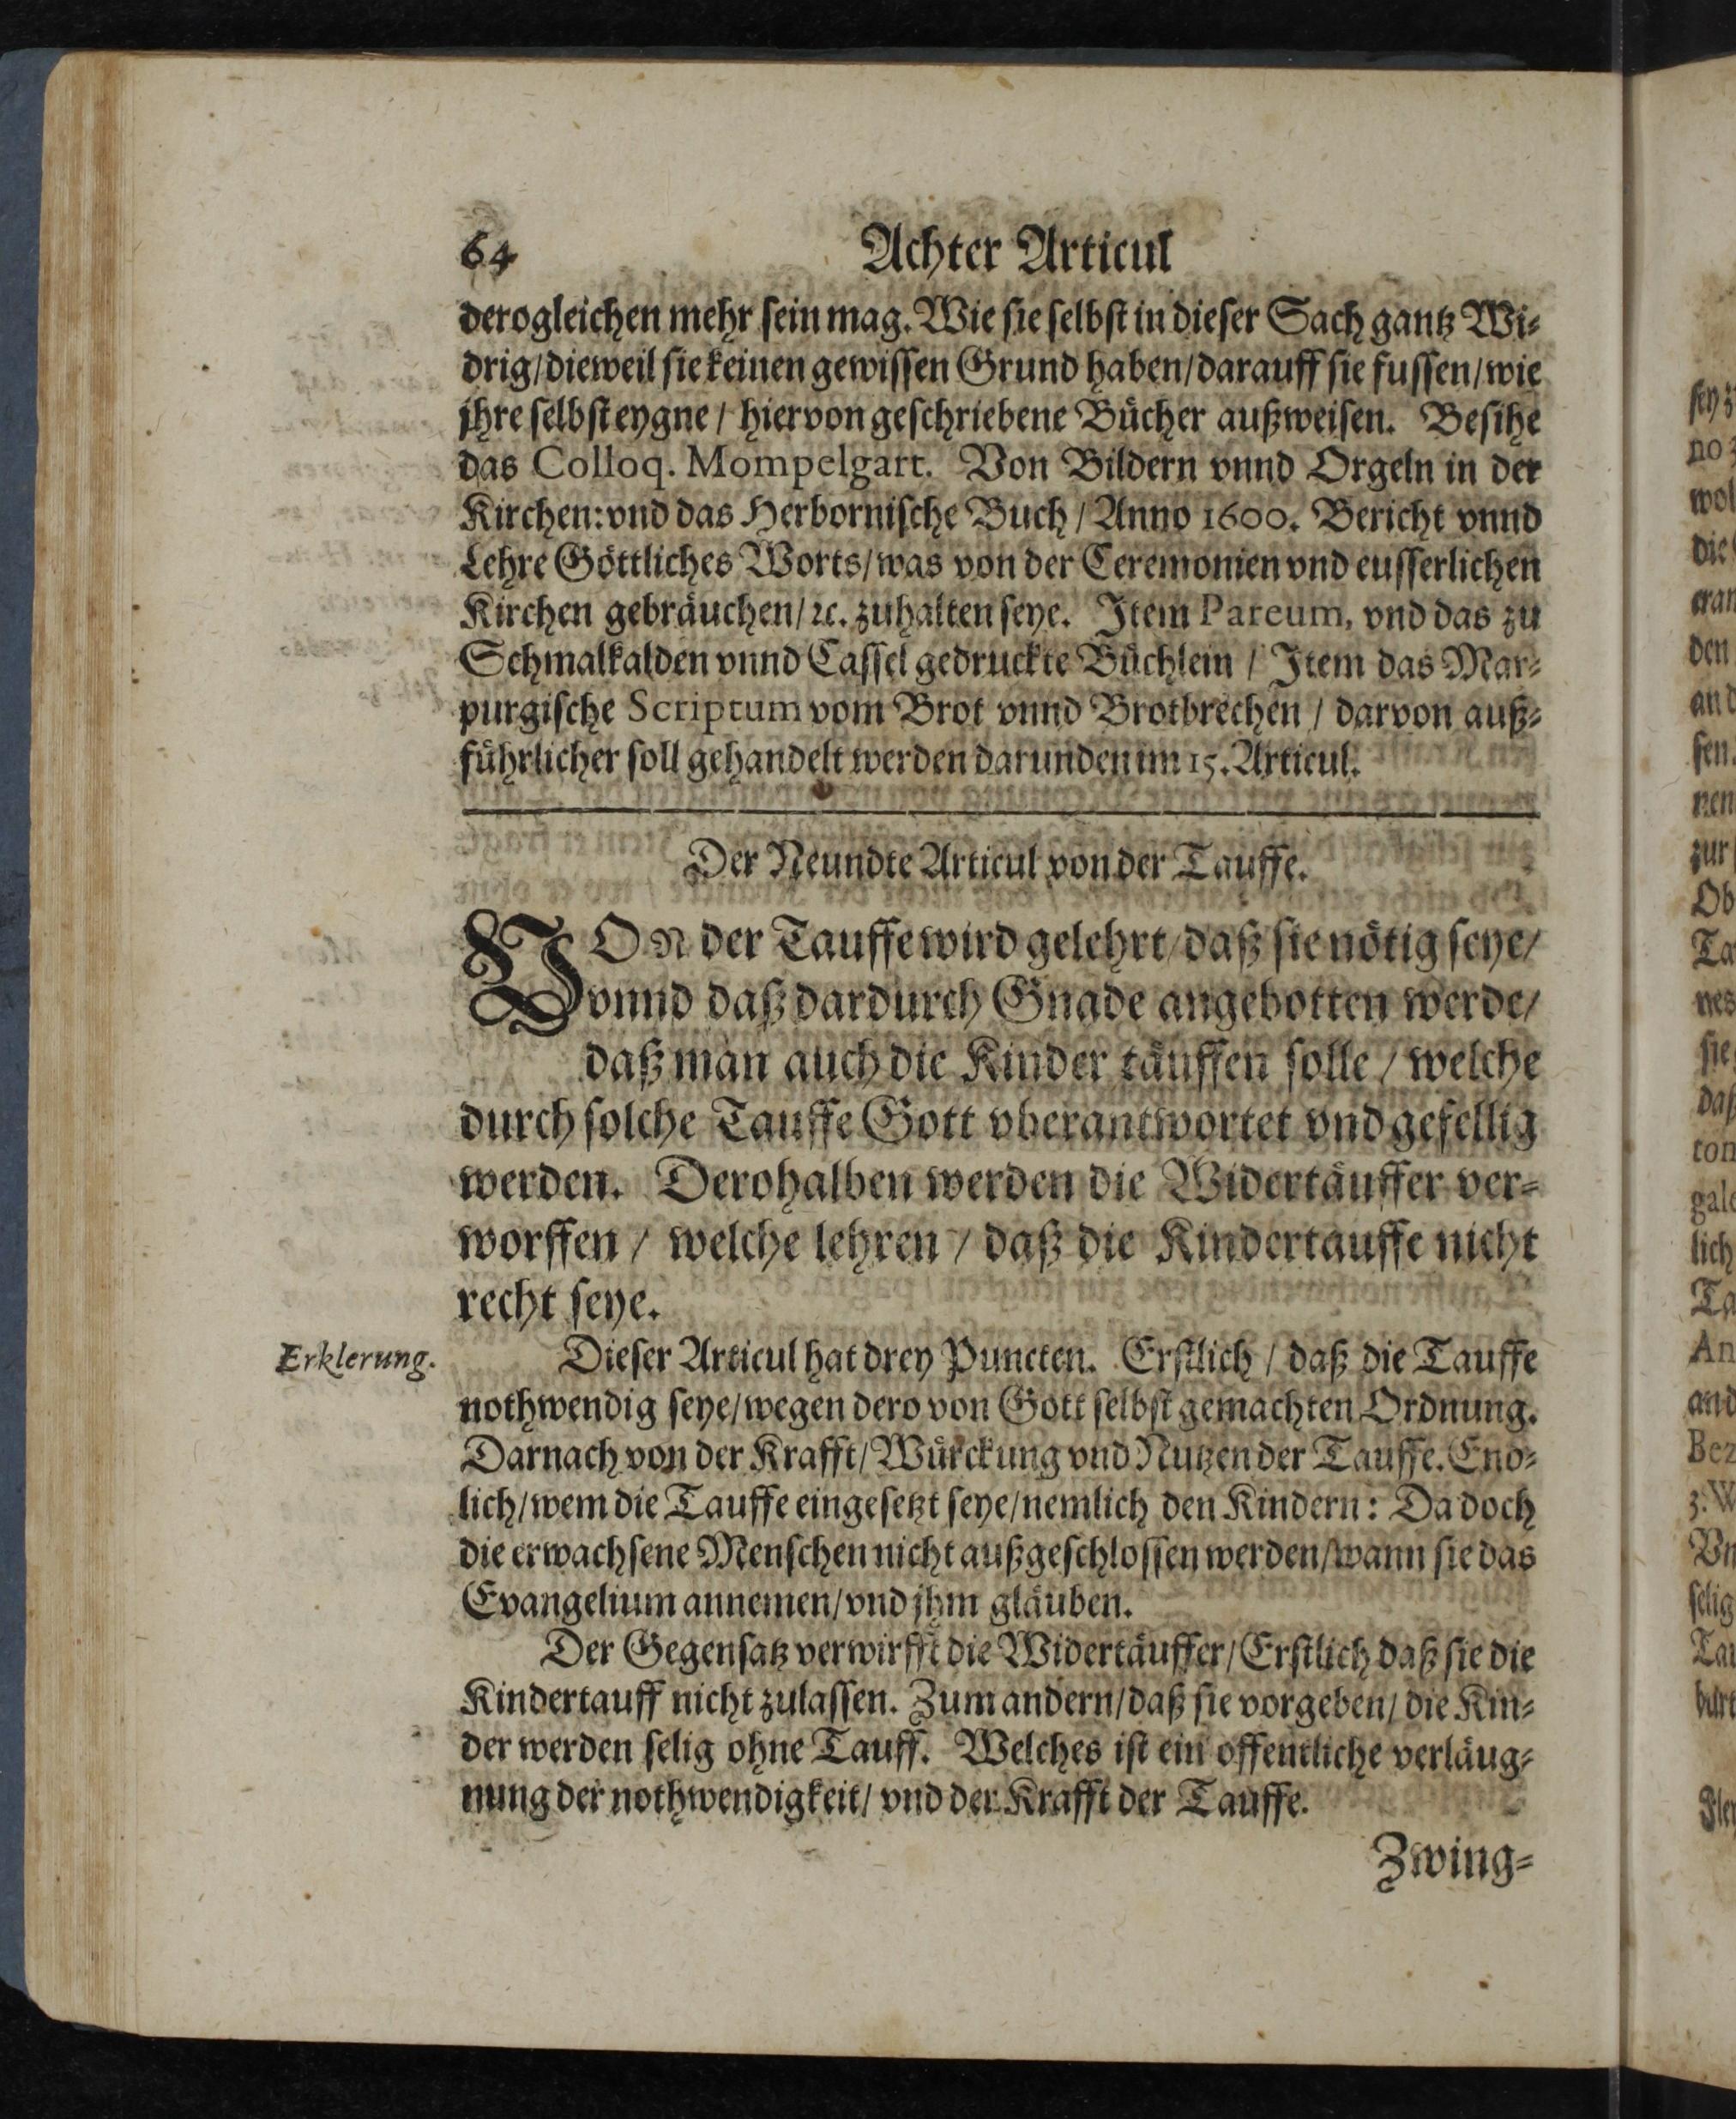 64 Achter Articul
derogleichen mehr sein mag. Wie sie selbst in dieser Sach gantz Wi-
drig/dieweil sie keinen gewissen Grund haben/darauff sie fussen/wie
jhre selbst eygne/ hiervon geschriebene Bücher außweisen. Besihe
das Colloq. Mompelgart. Von Bildern vnnd Orgeln in der
Kirchen: vnd das Herbornische Buch/Anno 1600. Bericht vnnd
Lehre Göttliches Worts/was von der Ceremonien vnd eusserlichen
Kirchen gebräuchen/ꝛc. zuhalten seye. Item Pareum, vnd das zu
Schmalkalden vnnd Cassel gedruckte Büchlein/ Item das Mar-
purgische Scriptum vom Brot vnnd Brotbrechen/ darvon auß-
führlicher soll gehandelt werden darunden im 15. Articul.
Der Neundte Articul von der Tauffe.
VOn der Tauffe wird gelehrt/daß sie nötig seye/
vnnd daß dardurch Gnade angebotten werde/
daß man auch die Kinder täuffen solle/ welche
durch solche Tauffe Gott vberantwortet vnd gefellig
werden. Derohalben werden die Widertäuffer ver-
worffen/ welche lehren/ daß die Kindertauffe nicht
recht seye.
Erklerung. Dieser Articul hat drey Puncten. Erstlich/ daß die Tauffe
nothwendig seye/wegen dero von Gott selbst gemachten Ordnung.
Darnach von der Krafft/Würckung vnd Nutzen der Tauffe. End-
lich/wem die Tauffe eingesetzt seye/nemlich den Kindern: Da doch
die erwachsene Menschen nicht außgeschlossen werden/wann sie das
Evangelium annemen/vnd jhm gläuben.
Der Gegensatz verwirfft die Widertäuffer/Erstlich daß sie die
Kindertauff nicht zulassen. Zum andern/daß sie vorgeben/ die Kin-
der werden selig ohne Tauff. Welches ist ein offentliche verläug-
nung der nothwendigkeit/ vnd der Krafft der Tauffe.
Zwing-